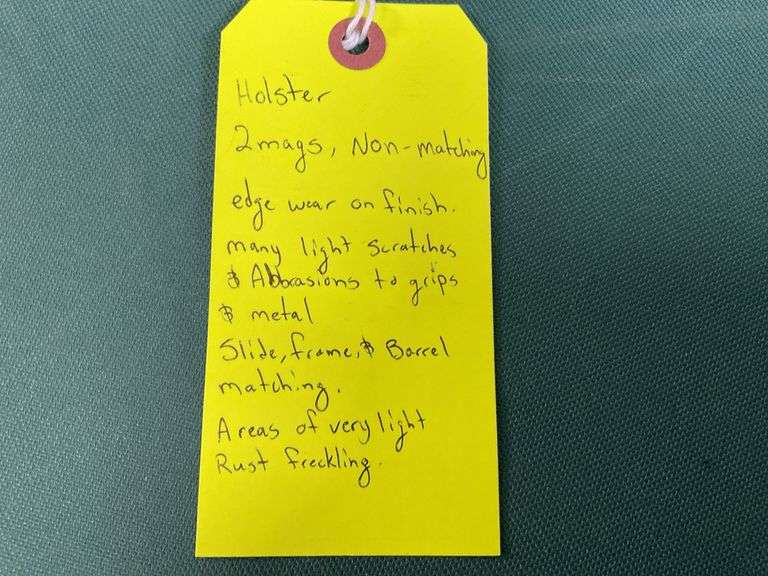 Holster
2 mags, Non-matching
edge wear on finish.
many light scratches
& Abbrasions to grips
& metal
Slide, frame, & Barrel
matching.
Areas of very light
Rust freckling.